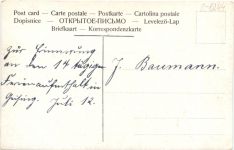 Post card – Carte postale – Postkarte – Cartolina postale
Dopisnice – ОТКРЫТОЕ-ПИСЬМО – Levelező-Lap
Briefkart – Korrespondenzkarte
Zur Erinnerung
an den 14 tägigen
Ferienaufenthalt in
Juli 12.
J. Baumann.